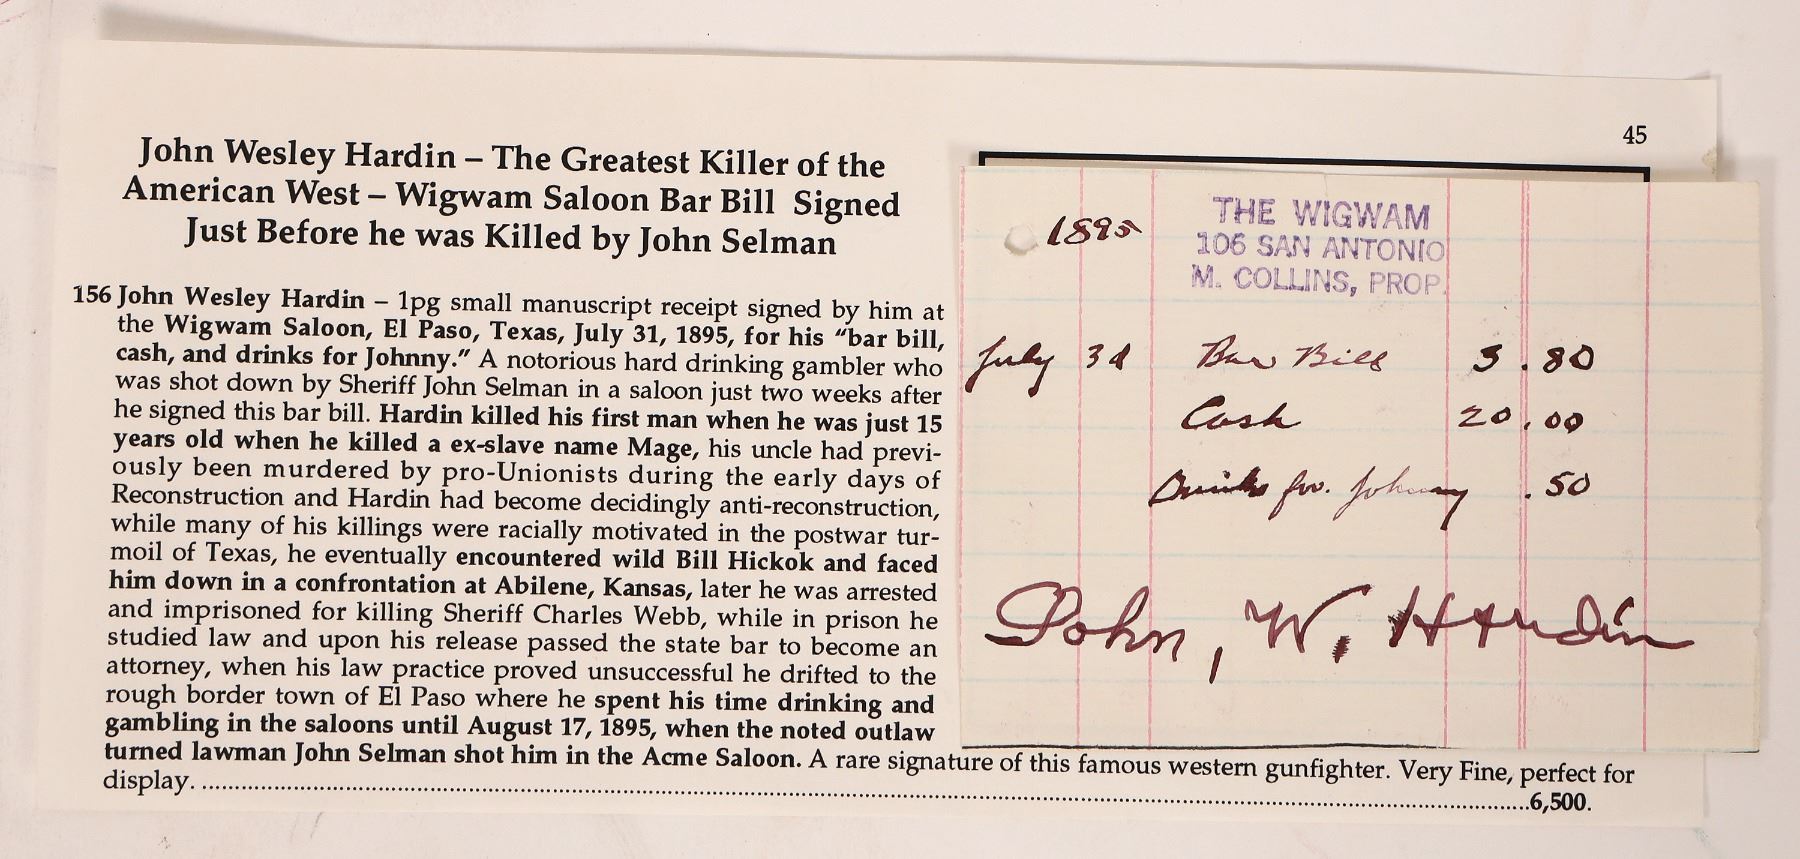 45
John Wesley Hardin – The Greatest Killer of the
American West – Wigwam Saloon Bar Bill Signed
Just Before he was Killed by John Selman
156 John Wesley Hardin – 1pg small manuscript receipt signed by him at
the Wigwam Saloon, El Paso, Texas, July 31, 1895, for his “bar bill,
cash, and drinks for Johnny.” A notorious hard drinking gambler who
was shot down by Sheriff John Selman in a saloon just two weeks after
he signed this bar bill. Hardin killed his first man when he was just 15
years old when he killed a ex-slave name Mage, his uncle had previ-
ously been murdered by pro-Unionists during the early days of
Reconstruction and Hardin had become decidingly anti-reconstruction,
while many of his killings were racially motivated in the postwar tur-
moil of Texas, he eventually encountered wild Bill Hickok and faced
him down in a confrontation at Abilene, Kansas, later he was arrested
and imprisoned for killing Sheriff Charles Webb, while in prison he
studied law and upon his release passed the state bar to become an
attorney, when his law practice proved unsuccessful he drifted to the
rough border town of El Paso where he spent his time drinking and
gambling in the saloons until August 17, 1895, when the noted outlaw
turned lawman John Selman shot him in the Acme Saloon. A rare signature of this famous western gunfighter. Very Fine, perfect for
display. ...............................................................6,500.
1895
THE WIGWAM
106 SAN ANTONIO
M. COLLINS, PROP.
July 31 Bar Bill 3.80
Cash 20.00
Drinks for. Johnny .50
John, W. Hardin